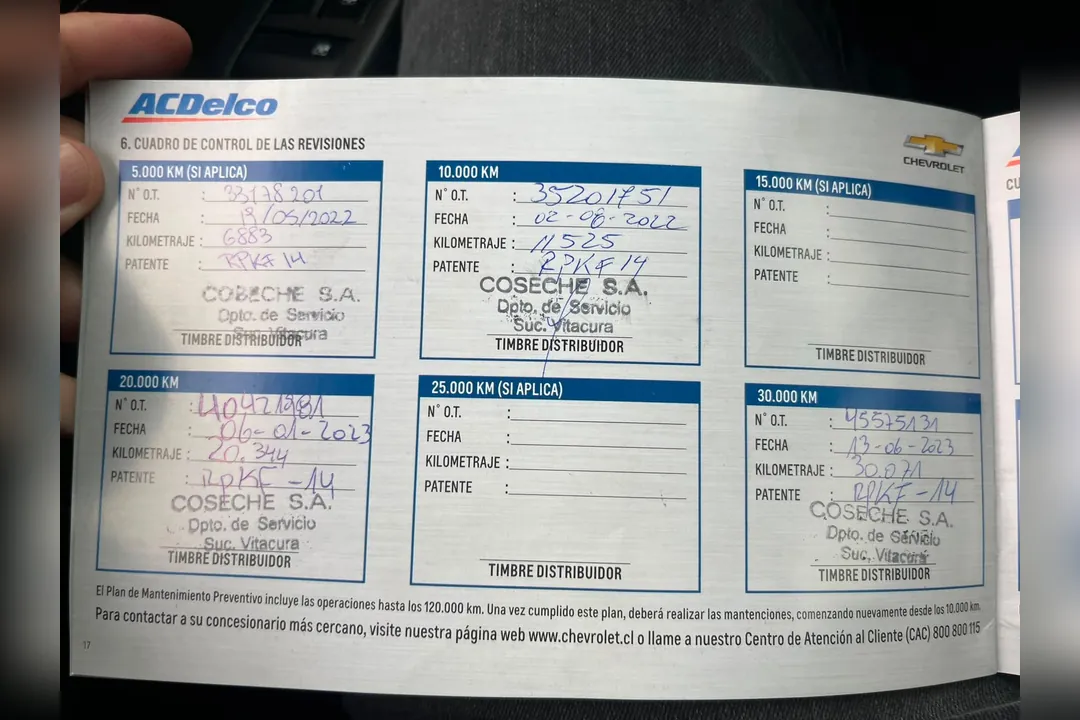 ACDelco
6. CUADRO DE CONTROL DE LAS REVISIONES
CHEVROLET
5.000 KM (SI APLICA)
N° O.T. : 33178201
FECHA : 19/05/2022
KILOMETRAJE : 6883
PATENTE : RPKF14
COSECHE S.A.
Dpto. de Servicio
Suc. Vitacura
TIMBRE DISTRIBUIDOR
10.000 KM
N° O.T. : 35201751
FECHA : 02-08-2022
KILOMETRAJE : 11525
PATENTE : RPKF14
COSECHE S.A.
Dpto. de Servicio
Suc. Vitacura
TIMBRE DISTRIBUIDOR
15.000 KM (SI APLICA)
N° O.T. :
FECHA :
KILOMETRAJE :
PATENTE :
TIMBRE DISTRIBUIDOR
20.000 KM
N° O.T. :
FECHA : 06-01-2023
KILOMETRAJE : 20.344
PATENTE : RPKF-14
COSECHE S.A.
Dpto. de Servicio
Suc. Vitacura
TIMBRE DISTRIBUIDOR
25.000 KM (SI APLICA)
N° O.T. :
FECHA :
KILOMETRAJE :
PATENTE :
TIMBRE DISTRIBUIDOR
30.000 KM
N° O.T. : 45575131
FECHA : 13-06-2023
KILOMETRAJE : 30.071
PATENTE : RPKF-14
COSECHE S.A.
Dpto. de Servicio
Suc. Vitacura
TIMBRE DISTRIBUIDOR
El Plan de Mantenimiento Preventivo incluye las operaciones hasta los 120.000 km. Una vez cumplido este plan, deberá realizar las mantenciones, comenzando nuevamente desde los 10.000 km.
Para contactar a su concesionario más cercano, visite nuestra página web www.chevrolet.cl o llame a nuestro Centro de Atención al Cliente (CAC) 800 800 115
17